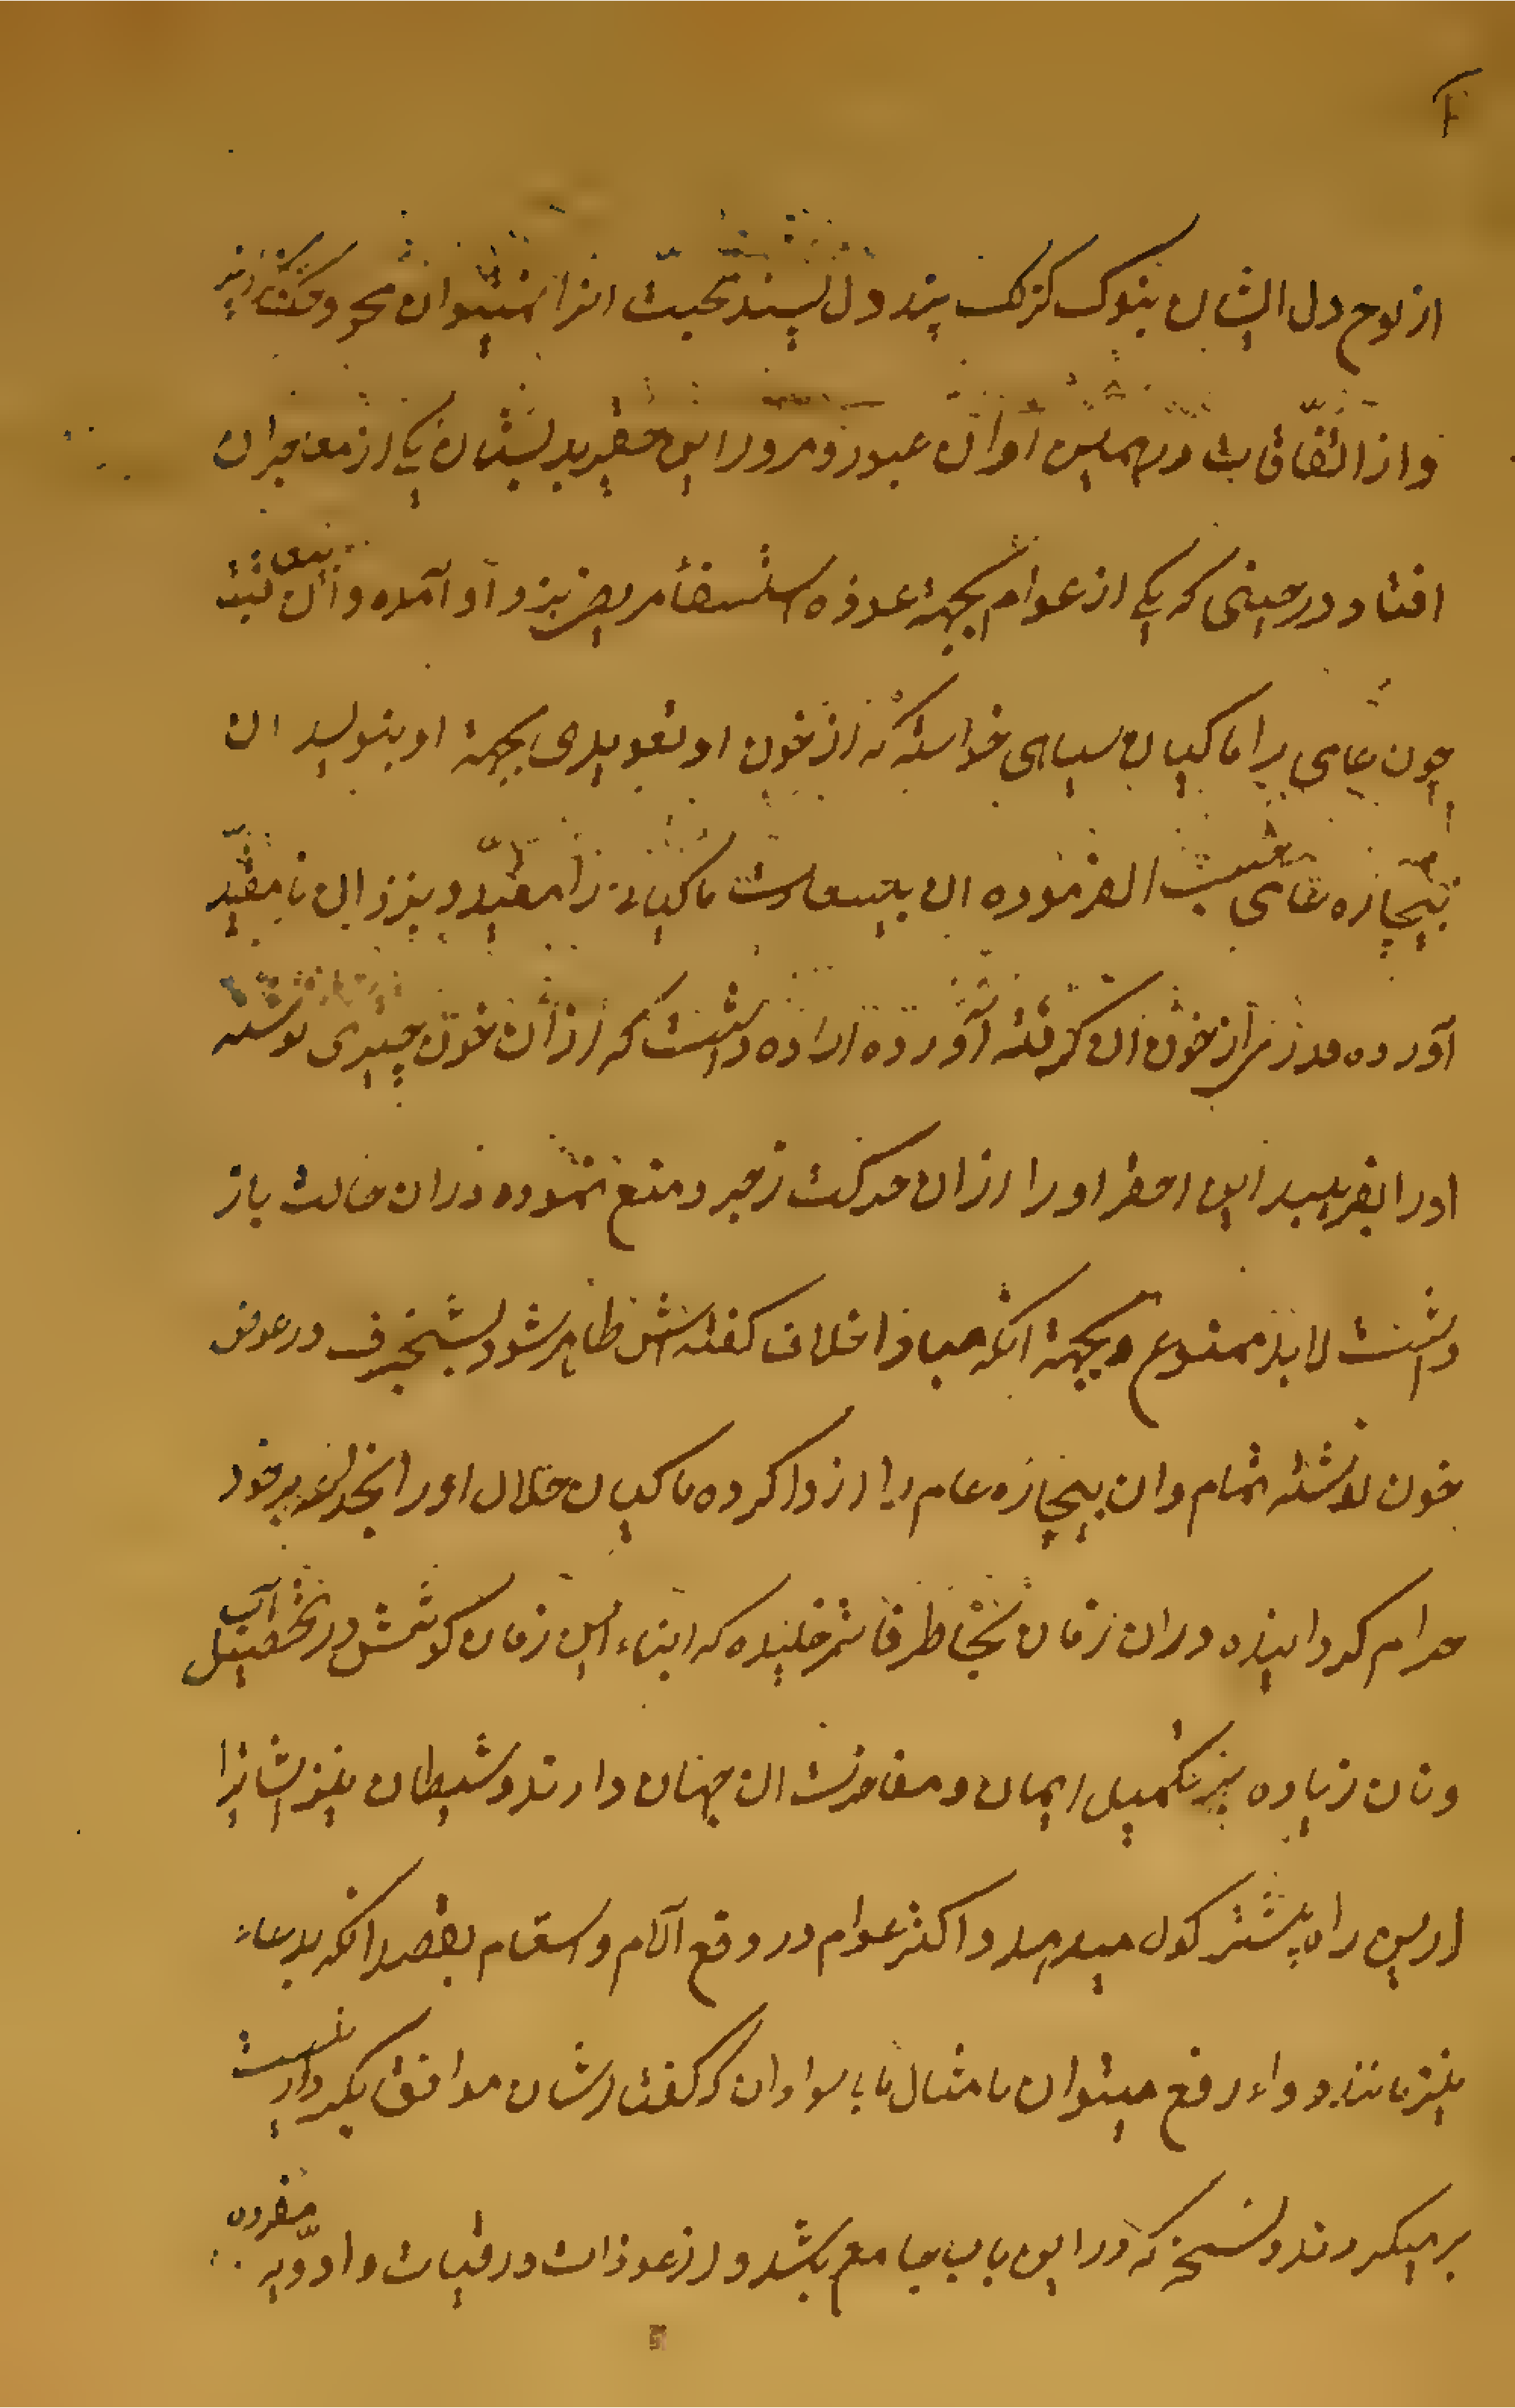 از لوح دل ایشان بنوک کزلک پند دل پسند محبت انرا نمیتوان محو و حک
و از اتفاقات در همین اوان عبور و مرور این حقیر بدبستان یکی از معاجزان
افتاد در حینی که یکی از عوام بجهة عوذه استشفأ مریض نزد او آمده و آن
چون عامی را ماکیان سیاهی خواسته که از خون او تعویذی بجهة او بنویسد ان
بیچاره عامی حسب الفرموده ان بیسعادت ماکیان را مقید و نزد ان نامقید
آورده قدری از خون ان گرفته آورده اراده داشت که از ان خون چیزی نوشته
او را بفریبد این احقر او را از ان حرکت زجر و منع نموده در ان حالت باز
داشت لابد ممنوع و بجهة انکه مبادا خلاف گفته اش ظاهر شود بشنجرف در عوض
خون نوشته تمام و ان بیچاره عام را از وا کرده ماکیان حلال او را بخدعه بر خود
حرام گردانیده در ان زمان بخاطر فاتر خلیده که ابناء این زمان کوشش در تحصیل آب
و نان زیاده بر تکمیل ایمان و مفاخرت ان جهان دارند و شیطان نیز ایشانرا
ازین راه بیشتر گول میدهد و اکثر عوام در دفع آلام و اسقام بقصد انکه بدعاء
نیز مانند دواء رفع میتوان بامثال نا باسوادان که گفتارشان موافق بکردار نیست
بر میگردند و نسخه که در این باب جامع باشد و از عوذات و رقیات و ادویه مفرده